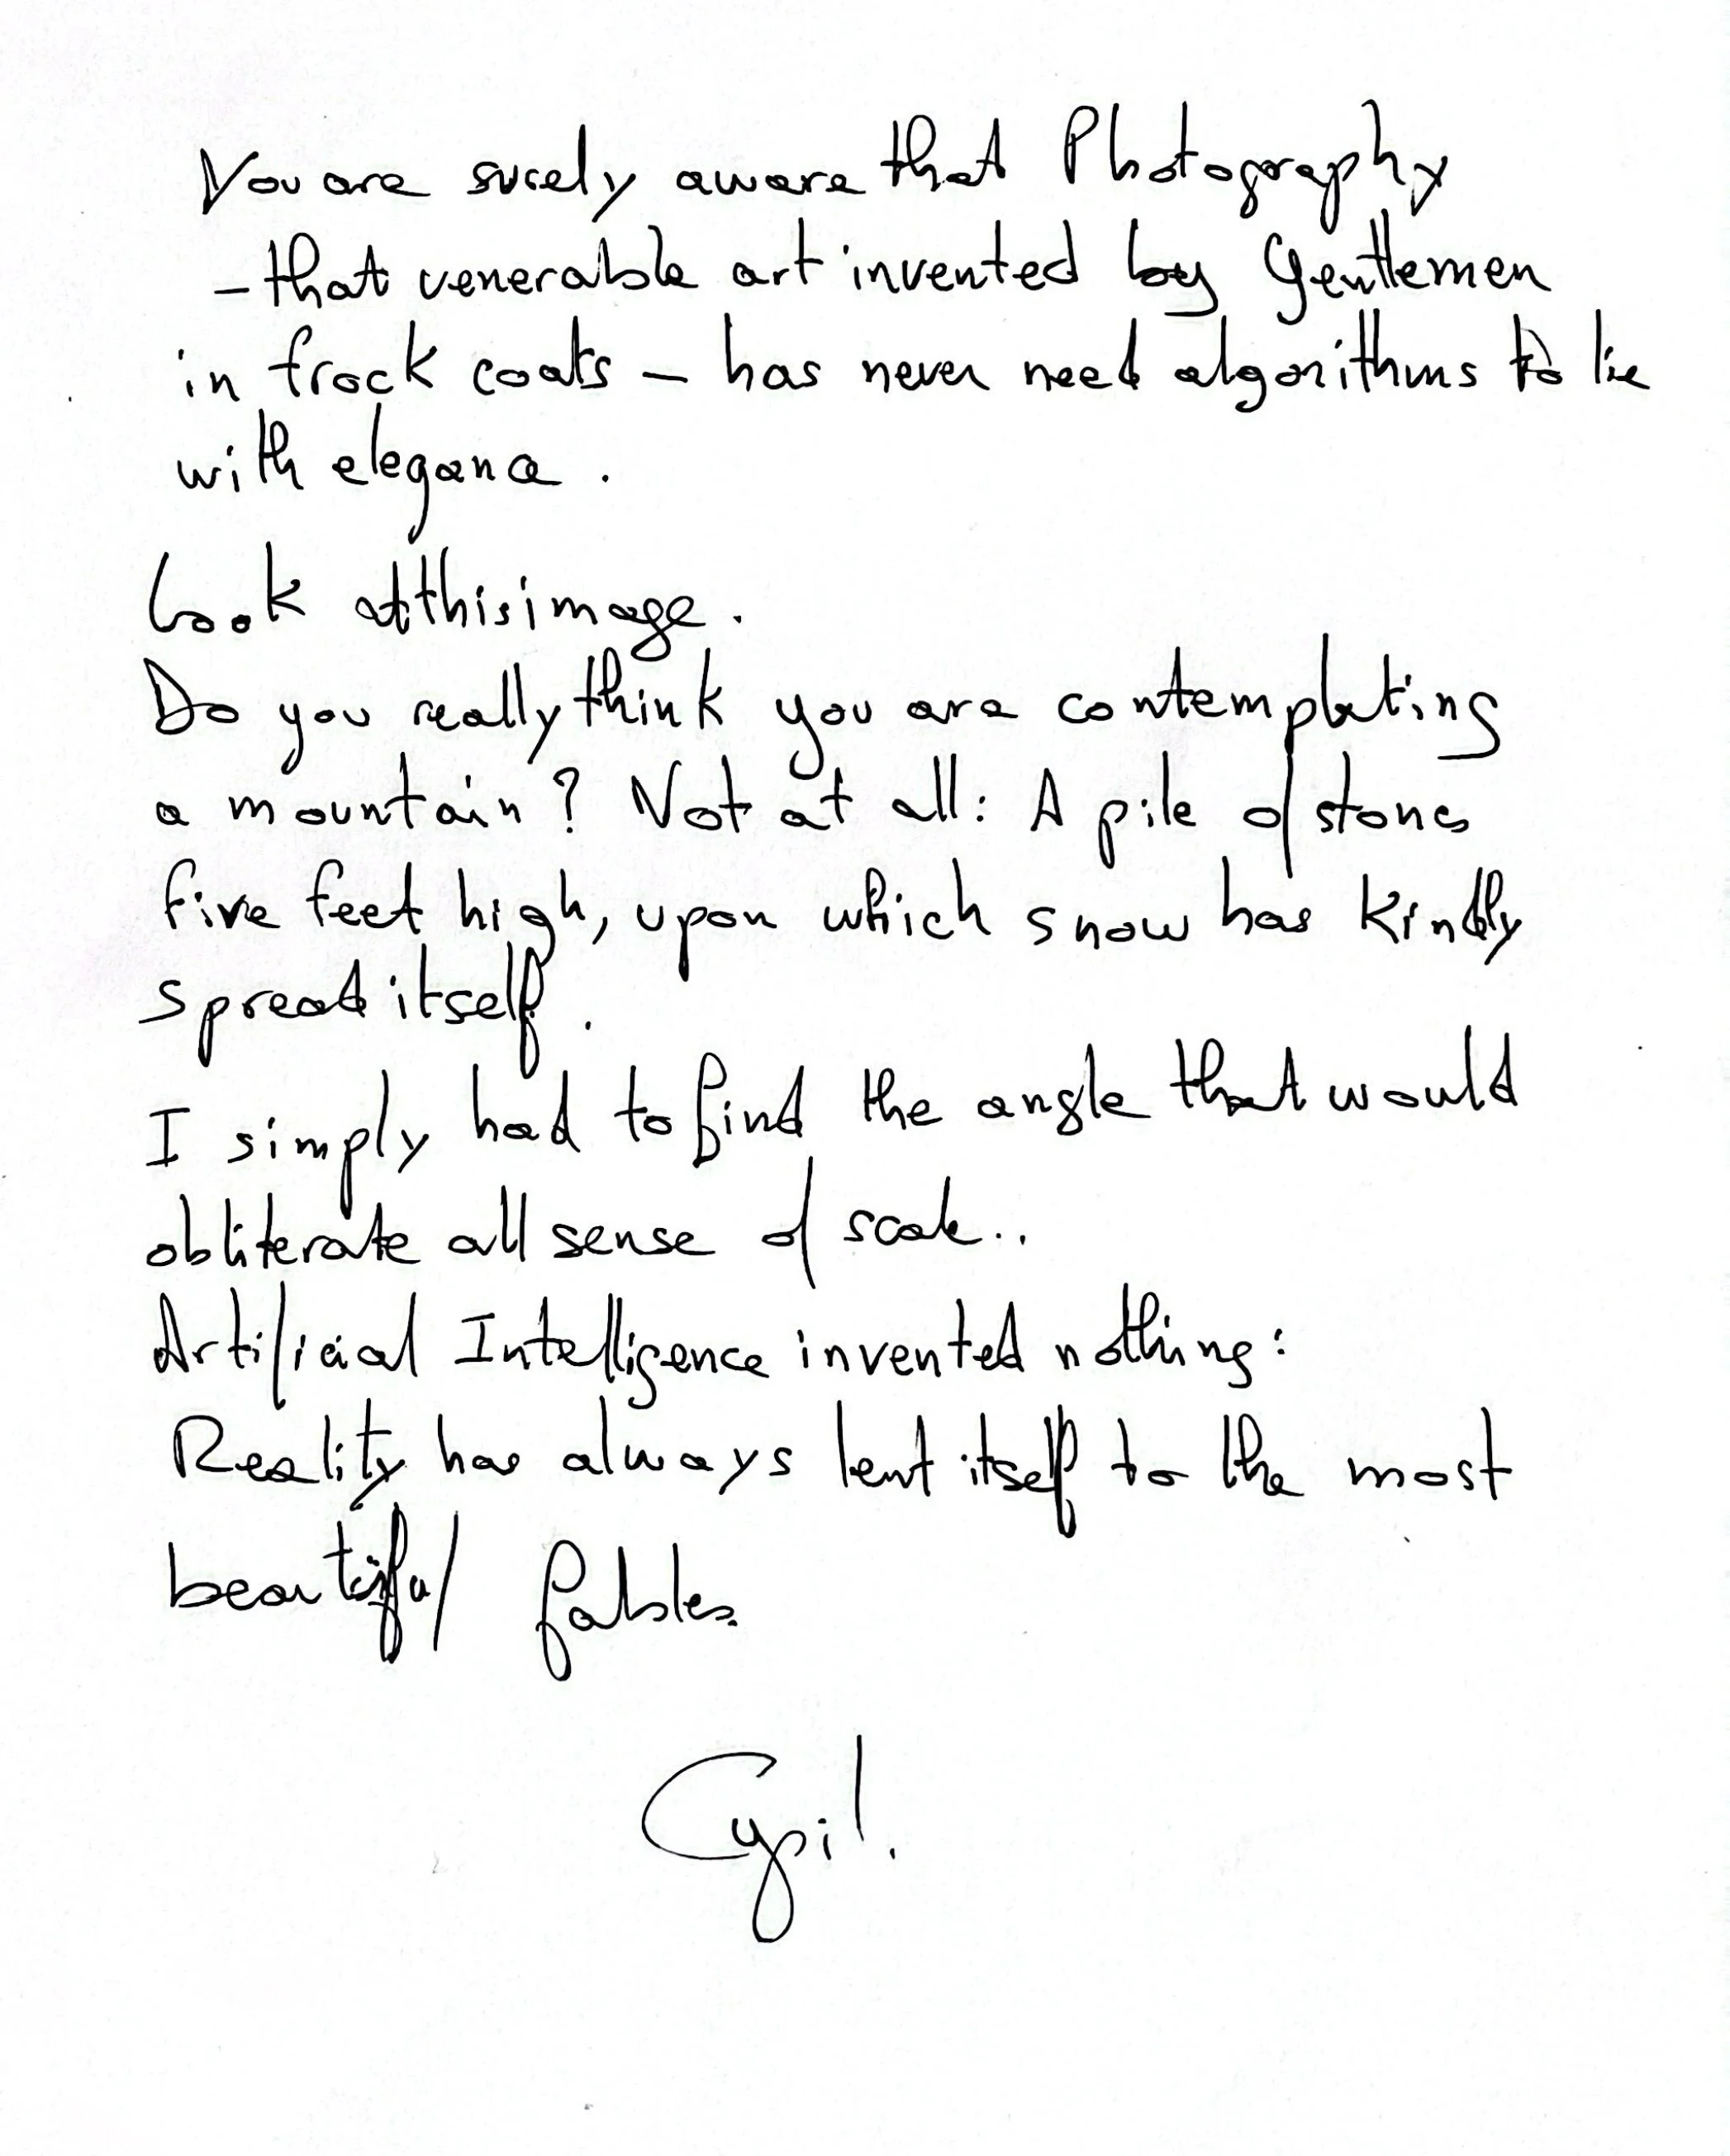 You are surely aware that Photography
- that venerable art invented by Gentlemen
in frock coats - has never need algorithms to lie
with elegance.
Look at this image.
Do you really think you are contemplating
a mountain? Not at all: A pile of stones
five feet high, upon which snow has kindly
spread itself.
I simply had to find the angle that would
obliterate all sense of scale..
Artificial Intelligence invented nothing:
Reality has always lent itself to the most
beautiful fables.
Cyril.